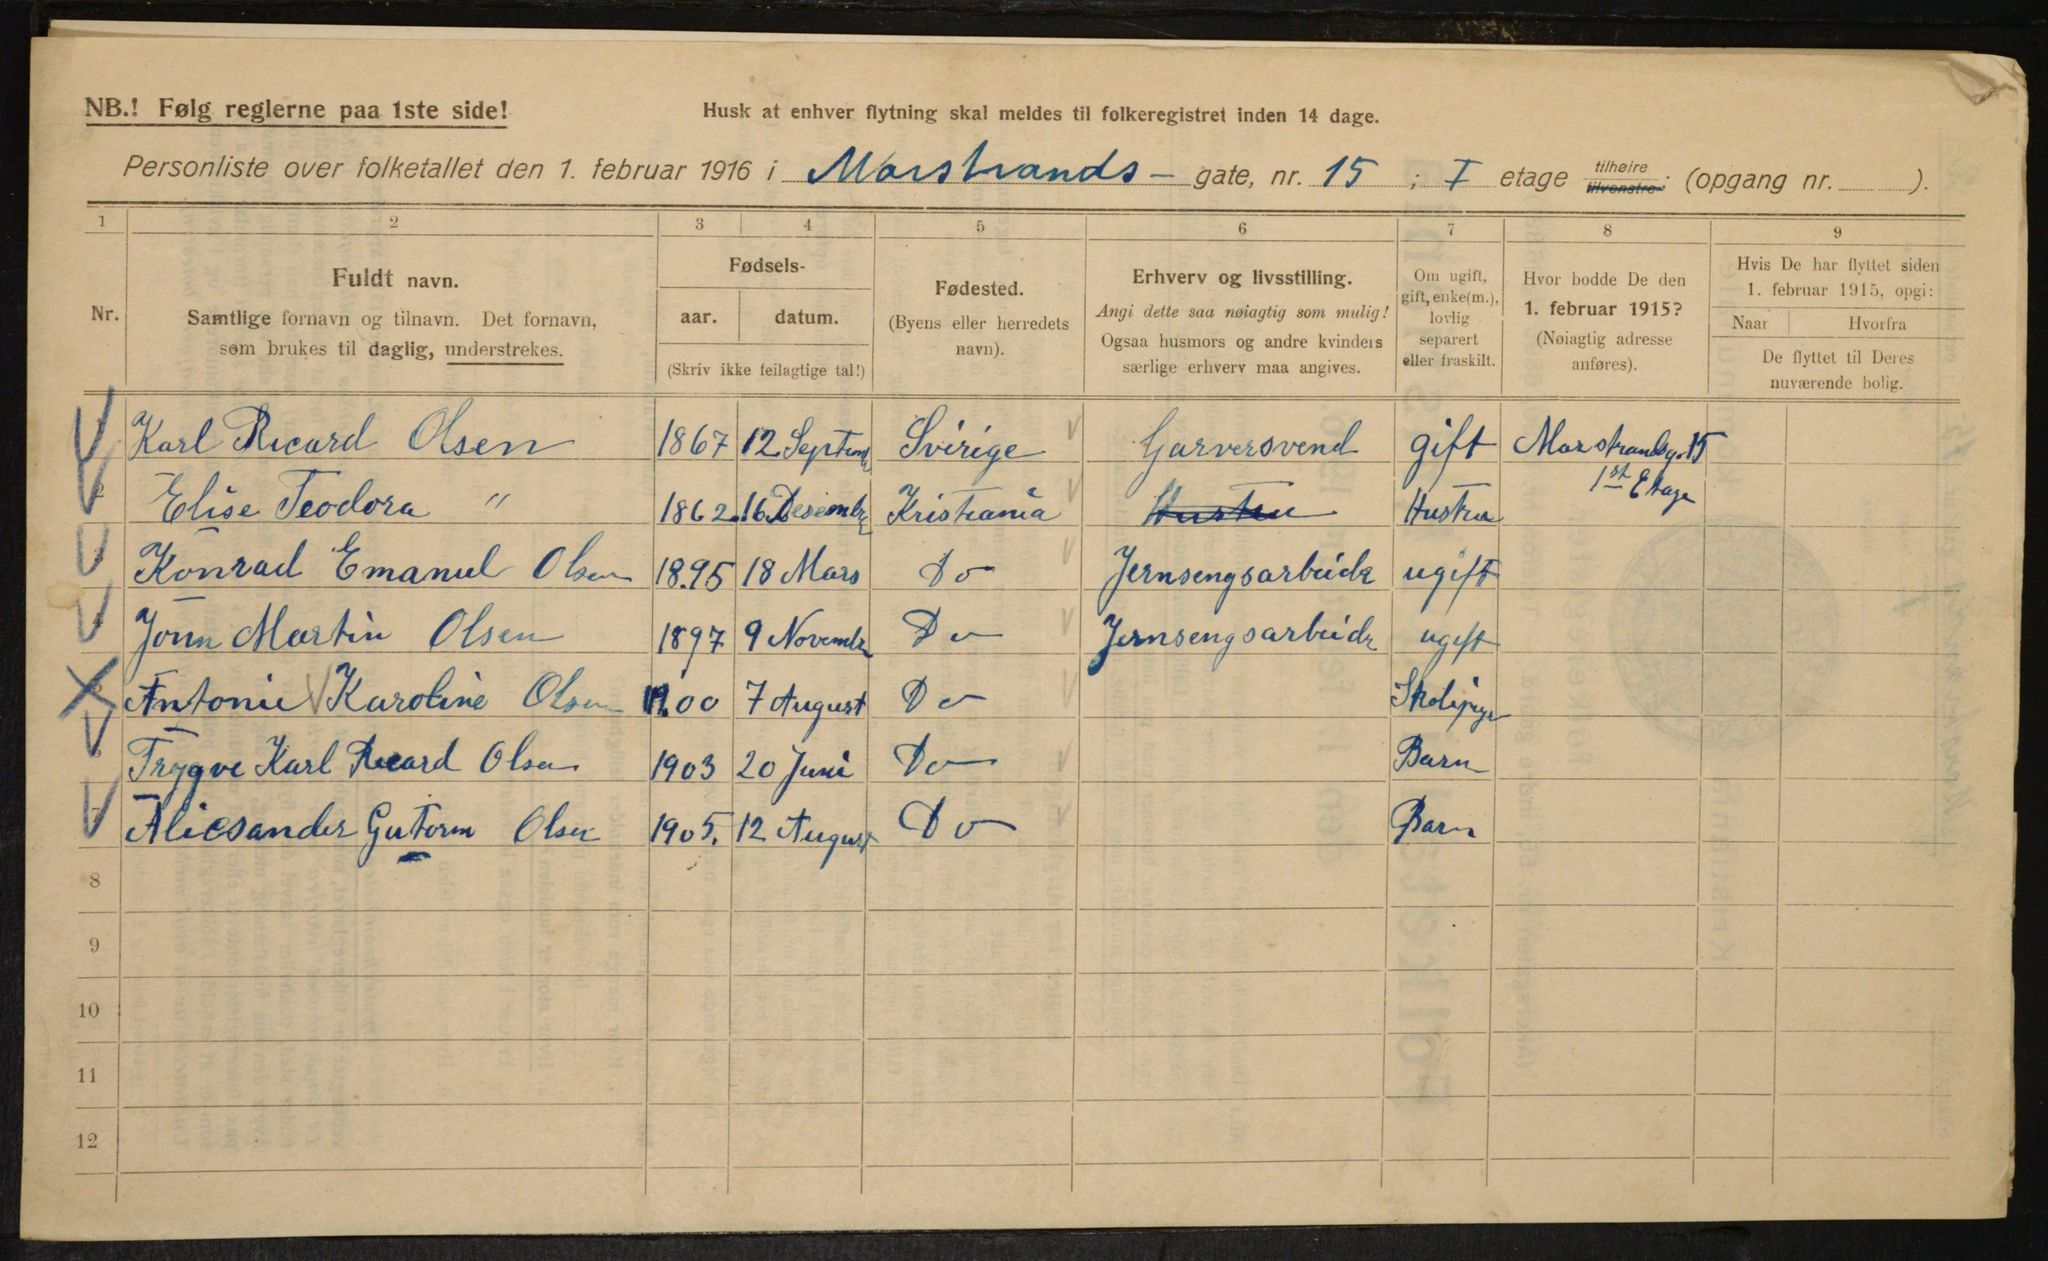 NB.! Følg reglerne paa 1ste side!
Husk at enhver flytning skal meldes til folkeregistret inden 14 dage.
Personliste over folketallet den 1. februar 1916 i Marstrands - gate, nr. 15 ; I etage tilhøire tilvenstre. (opgang nr. ).
1 2 3 4 5 6 7 8 9
Nr.
Fuldt navn.
Samtlige fornavn og tilnavn. Det fornavn,
som brukes til daglig, understrekes.
Fødsels-
aar. datum.
(Skriv ikke feilagtige tal!)
Fødested.
(Byens eller herredets
navn).
Erhverv og livsstilling.
Angi dette saa nøiagtig som mulig!
Ogsaa husmors og andre kvinders
særlige erhverv maa angives.
Om ugift,
gift, enke(m.),
lovlig
separert
eller fraskilt.
Hvor bodde De den
1. februar 1915?
(Nøiagtig adresse
anføres).
Hvis De har flyttet siden
1. februar 1915, opgi:
Naar Hvorfra
De flyttet til Deres
nuværende bolig.
Karl Ricard Olsen 1867 12 Septemb Svirige Garversvend gift Marstrandsg. 15
1st Etage
2 Elise Teodora " 1862. 16 Desembr Kristiania Hustru Hustru
3 Konrad Emanuel Olsen 18.95 18 Mars Do Jernsengsarbeider ugift
Jonn Martin Olsen 1897 9 Novembr Do Jernsengsarbeidr ugift
5 Antonie Karoline Olsen 19.00 7 August Do Skolepige
Trygve Karl Ricard Olsen 1903 20 Juni Do Barn
7 Alicsander Gutorm Olsen 1905. 12 August Do Barn
8
9
10
11
12